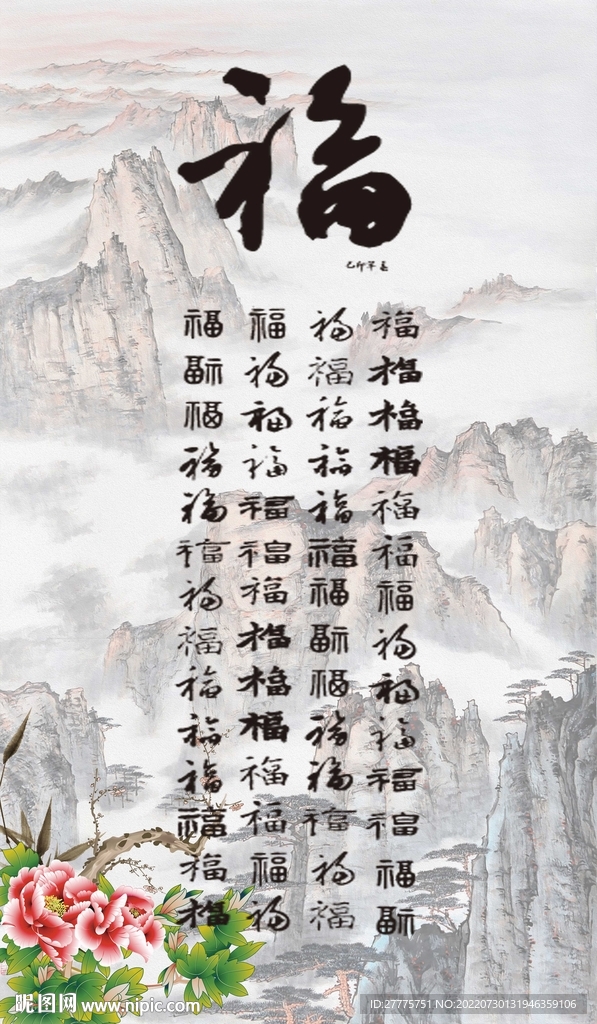 福
己卯年
福福福福
福福福福
福福福福
福福福福
福福福福
福福福福
福福福福
福福福福
福福福福
福福福福
福福福福
福福福福
福福福福
福福福福
昵图网 www.nipic.com
ID:27775751 NO:20220730131946359106